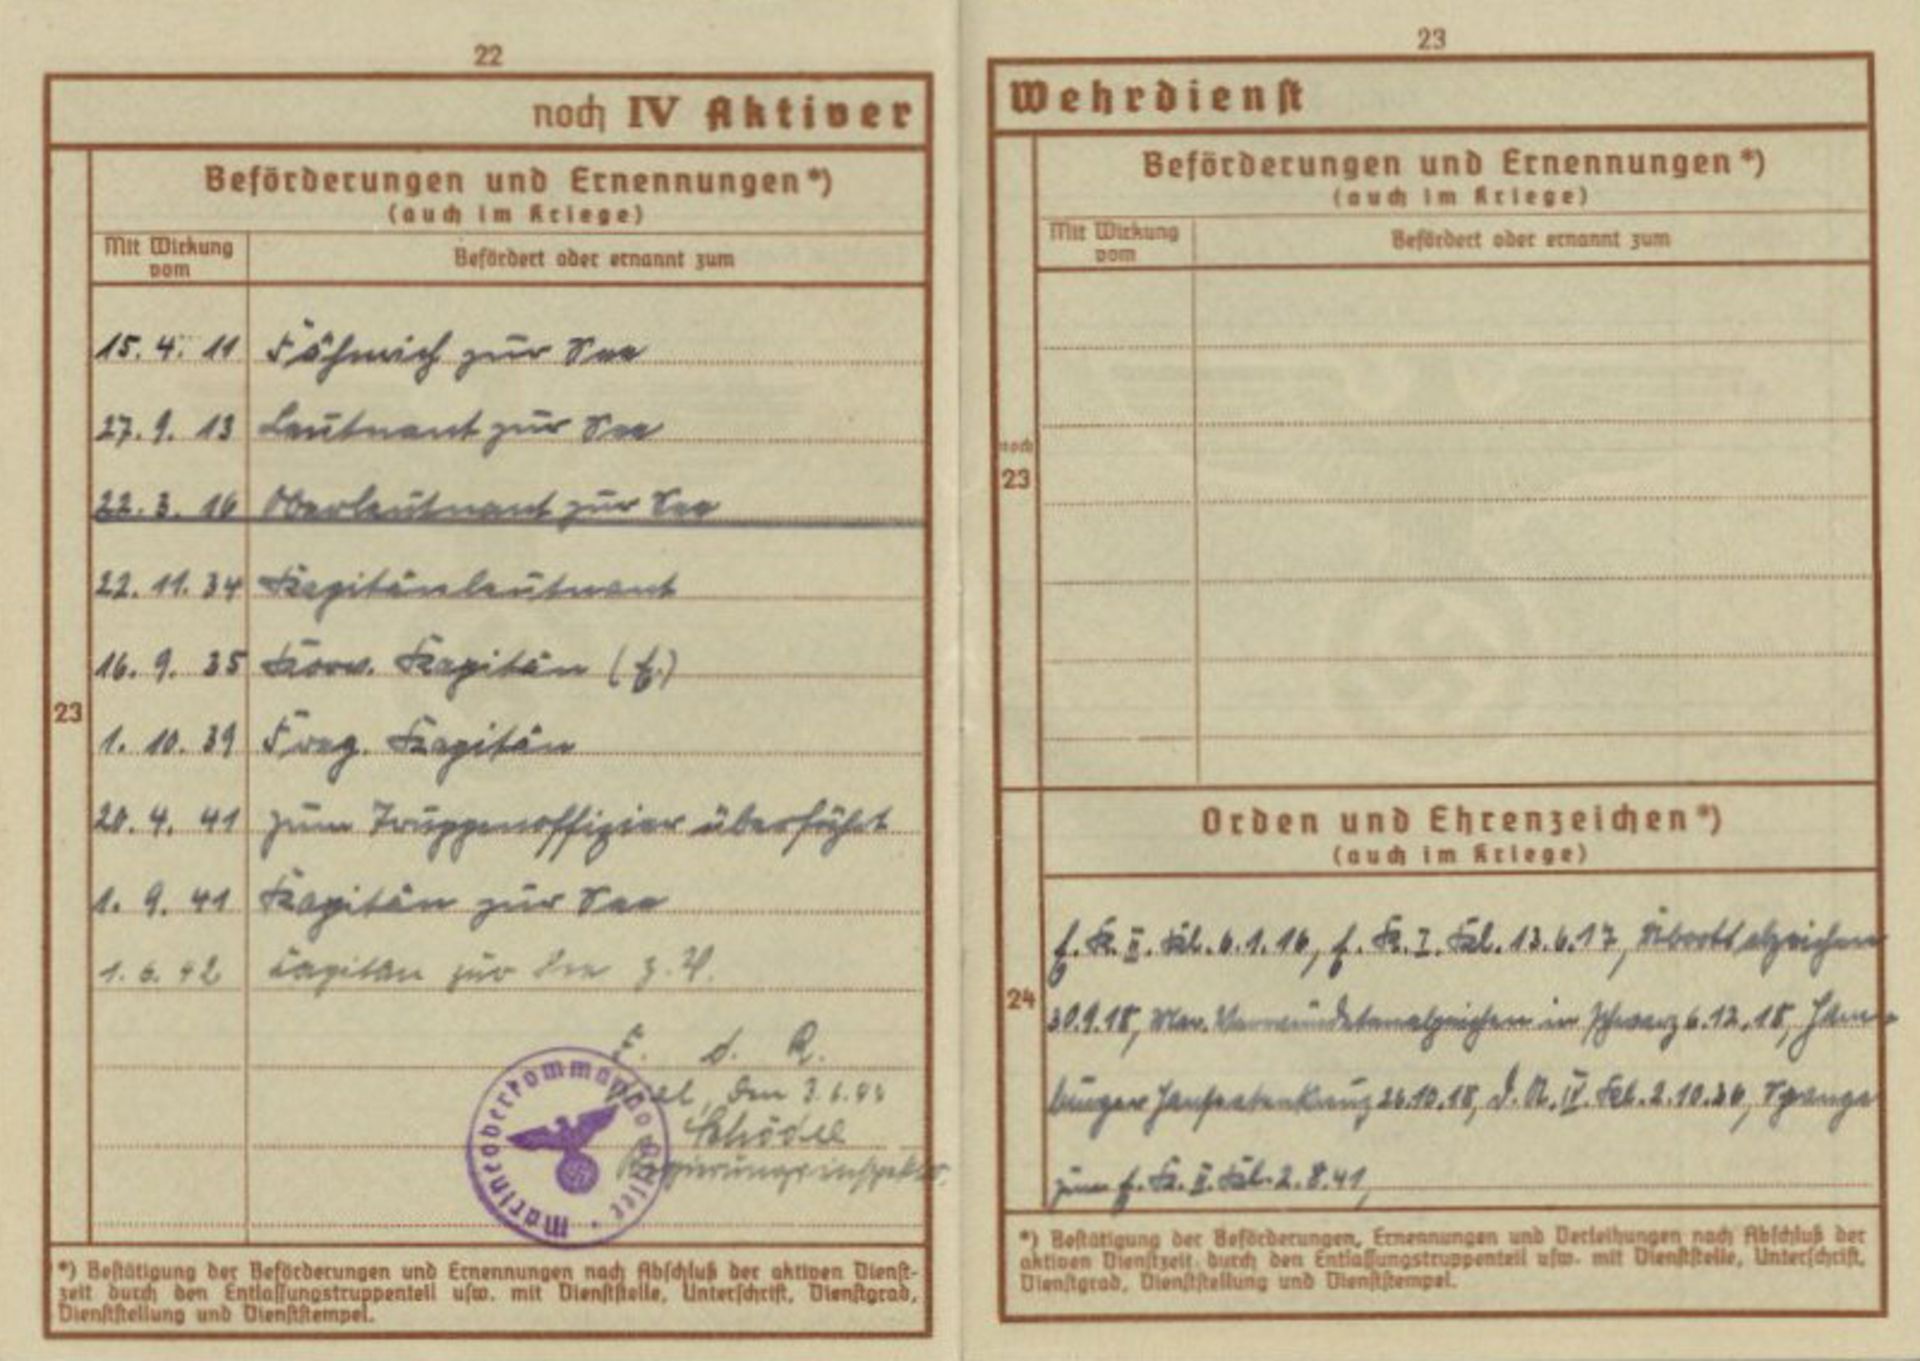 22
noch IV Aktiver
Beförderungen und Ernennungen*)
(auch im Kriege)
Mit Wirkung vom
Befördert oder ernannt zum
15. 4. 11 Fähnrich zur See
27. 9. 13 Leutnant zur See
22. 3. 16 Oberleutnant zur See
22. 11. 34 Kapitänleutnant
16. 9. 35 Korv. Kapitän (E.)
23
1. 10. 39 Freg. Kapitän
20. 4. 41 zum Truppenoffizier überführt
1. 9. 41 Kapitän zur See
1. 6. 42 Kapitän zur See z. V.
F. d. R.
Kiel, den 3.6.44
Schödel
Regierungsinspektor.
Marineoberkommando Ostsee
*) Bestätigung der Beförderungen und Ernennungen nach Abschluß der aktiven Dienst-
zeit durch den Entlassungstruppenteil usw. mit Dienststelle, Unterschrift, Dienstgrad,
Dienststellung und Dienststempel.
23
Wehrdienst
Beförderungen und Ernennungen*)
(auch im Kriege)
Mit Wirkung vom
Befördert oder ernannt zum
noch
23
Orden und Ehrenzeichen*)
(auch im Kriege)
E. K. II. Kl. 6.1.16, E. K. I. Kl. 13.6.17, Ubootsabzeichen
24
30.9.18, Mar. Verwundetenabzeichen in schwarz 6.12.18, Ham-
burger Hanseatenkreuz 26.10.18, D. A. IV. Kl. 2.10.36, Spange
zum E. K. II. Kl. 2.8.41,
*) Bestätigung der Beförderungen, Ernennungen und Verleihungen nach Abschluß der
aktiven Dienstzeit durch den Entlassungstruppenteil usw. mit Dienststelle, Unterschrift,
Dienstgrad, Dienststellung und Dienststempel.